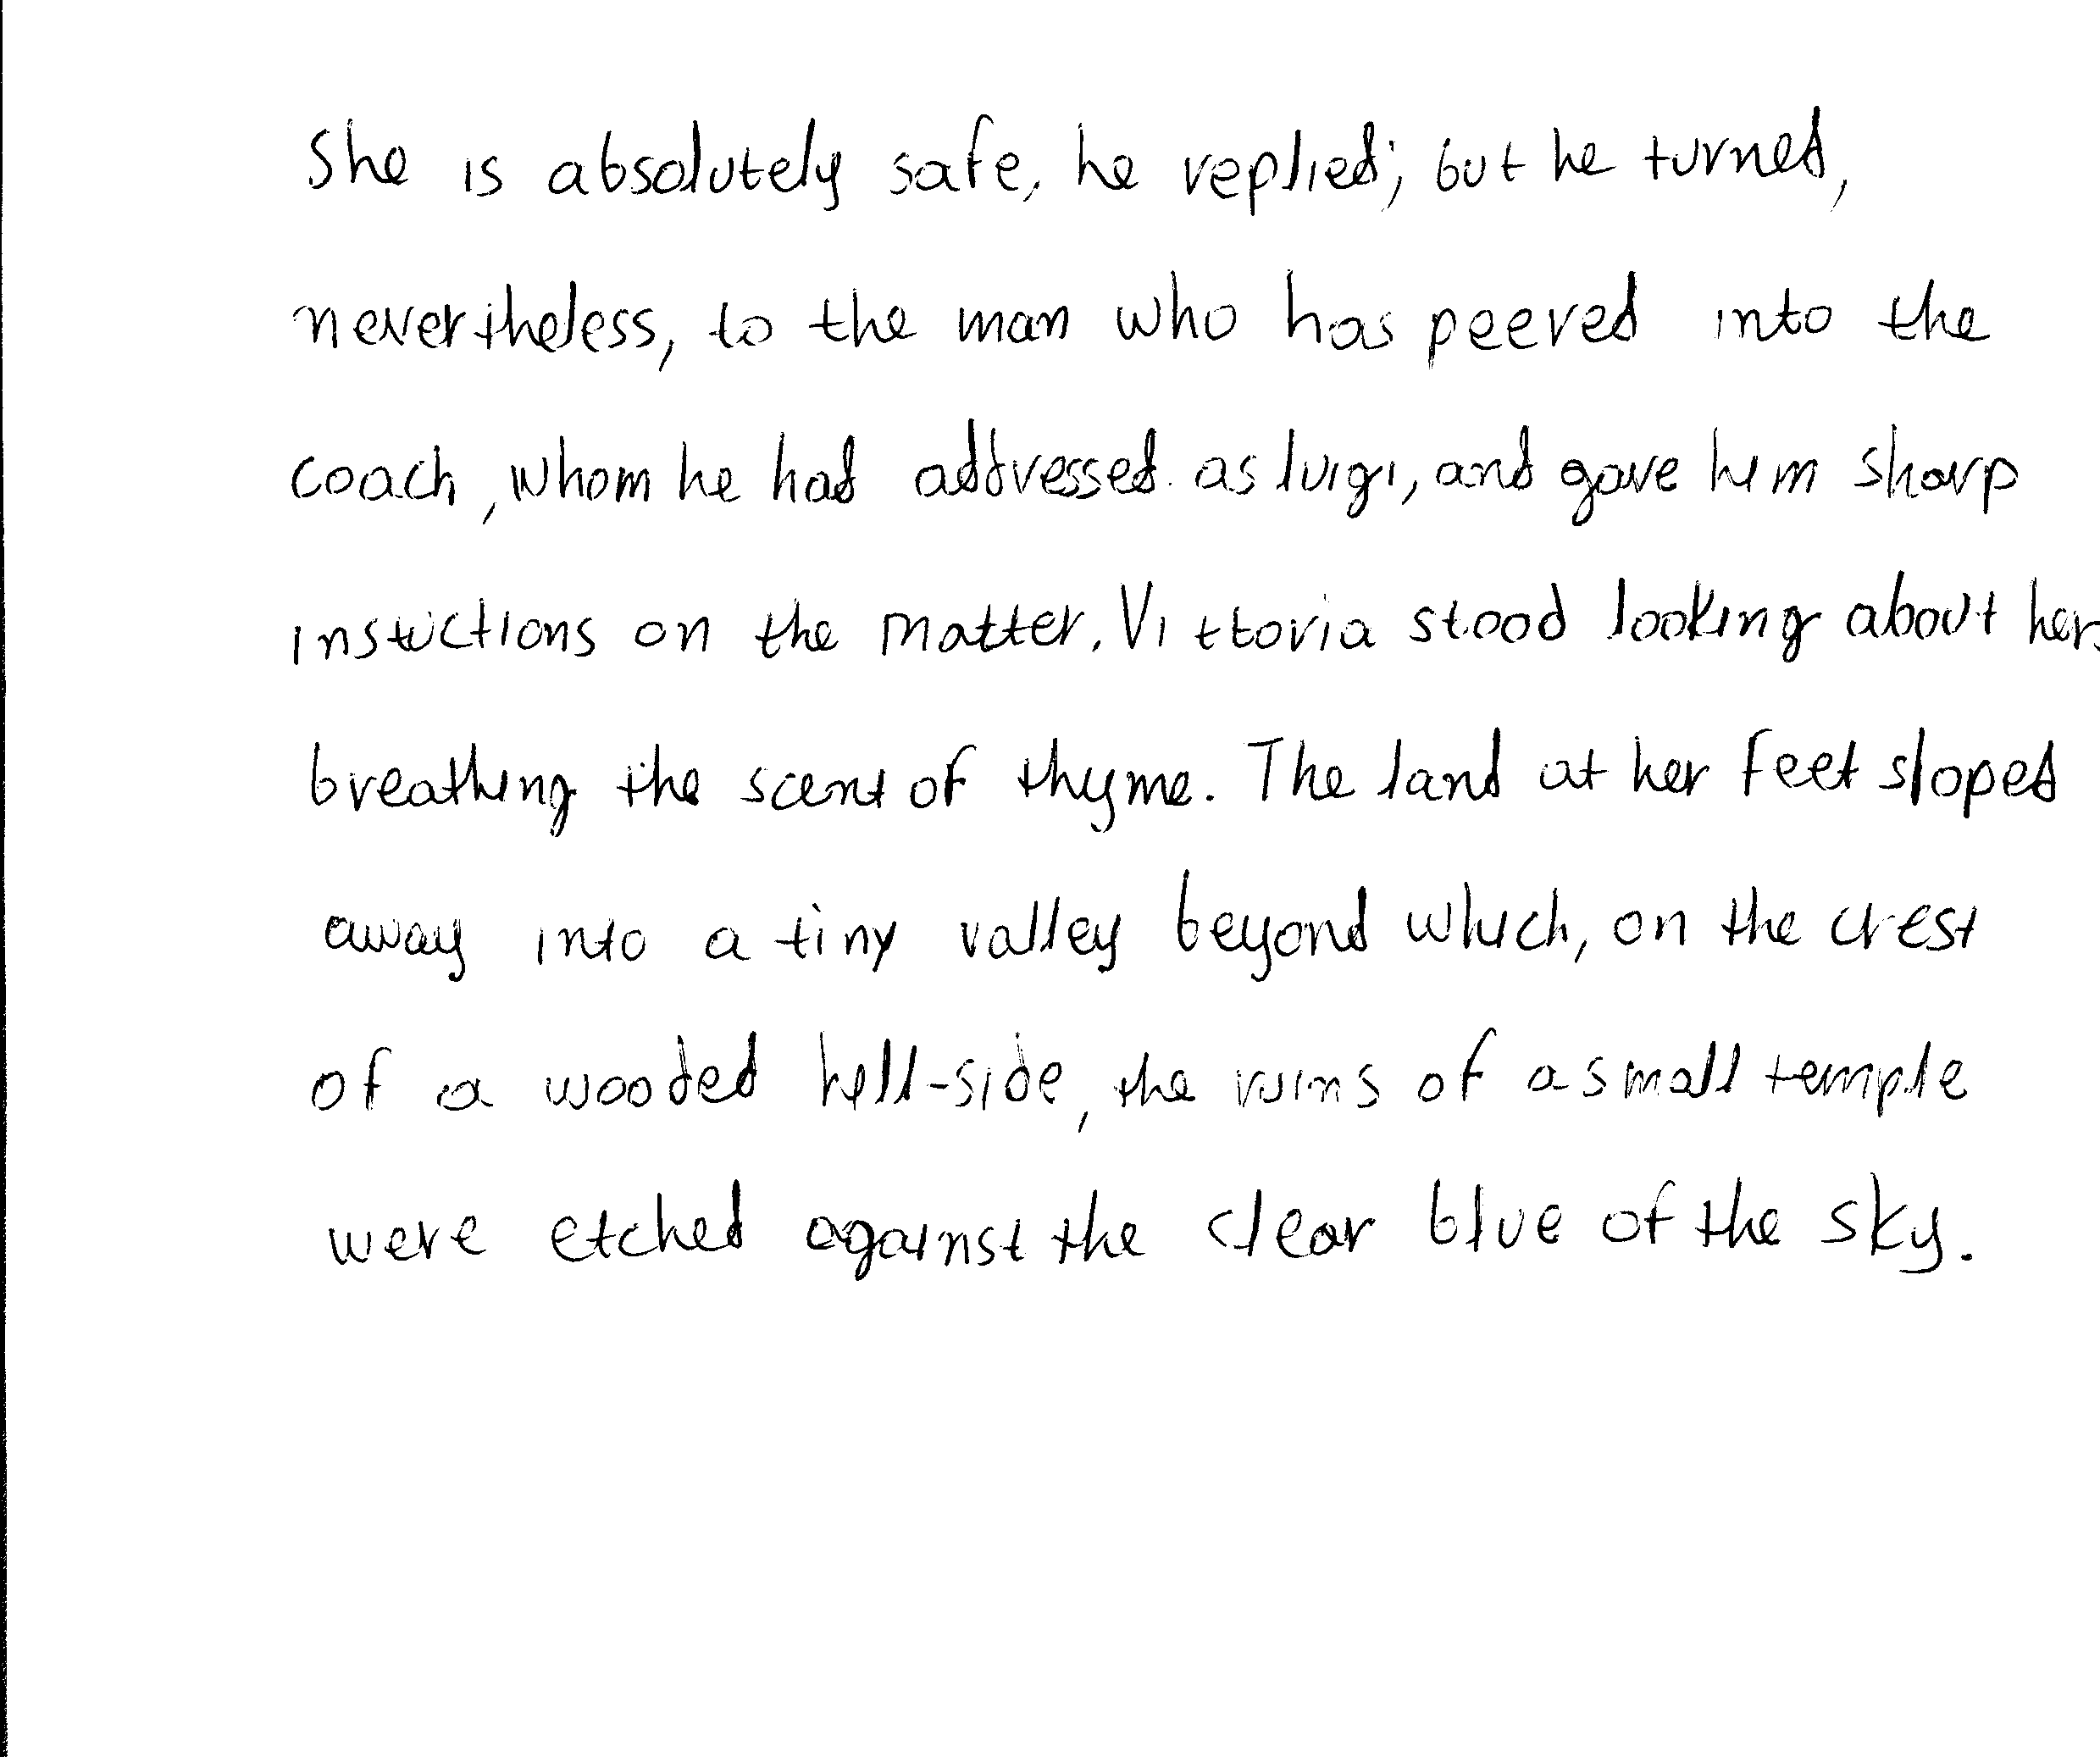 She is absolutely safe, he replied; but he turned,
nevertheless, to the man who has peered into the
coach, whom he had addressed as luigi, and gave him sharp
instuctions on the matter. Vittoria stood looking about her,
breathing the scent of thyme. The land at her feet sloped
away into a tiny valley beyond which, on the crest
of a wooded hill-side, the ruins of a small temple
were etched against the clear blue of the sky.